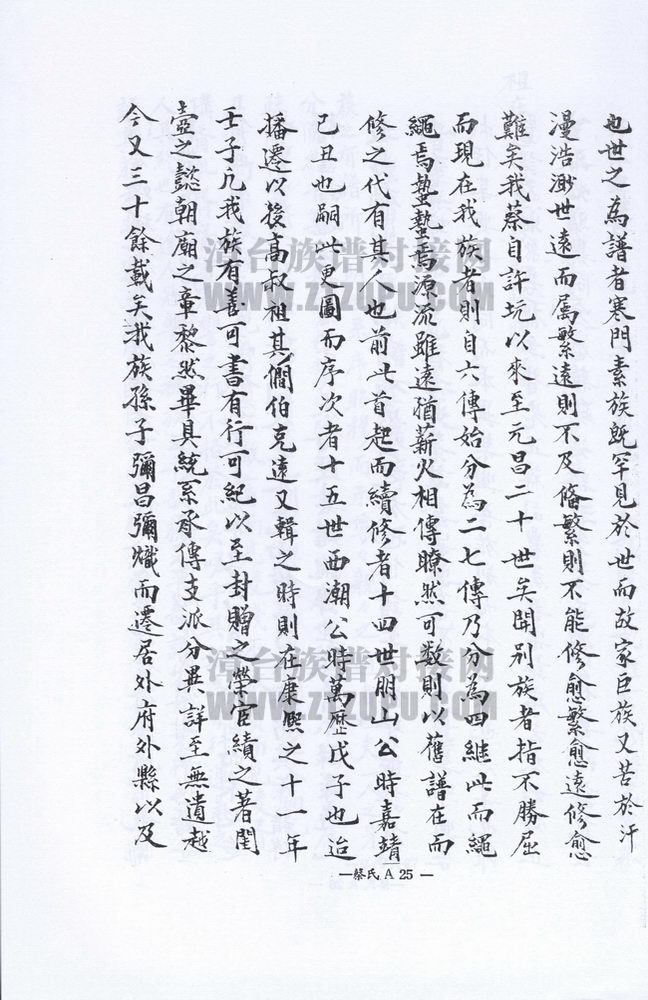 也世之為譜者寒門素族既罕見於世而故家巨族又苦於汗
漫浩渺世遠而屬繁遠則不及脩繁則不能修愈繁愈遠修愈
難矣我蔡自許坑以來至元昌二十世矣開別族者指不勝屈
而現在我族者則自六傳始分為二七傳乃分為四繼此而繩
繩焉蟄蟄焉源流雖遠猶薪火相傳瞭然可数則以舊譜在而
修之代有其人也前此首起而續修者十四世朋山公時嘉靖
己丑也嗣此更圖而序次者十五世西潮公時萬歷戊子也迨
播遷以後高叔祖其僴伯克遠又輯之時則在康熙之十一年
壬子凡我族有善可書有行可紀以至封贈之榮宦績之著閨
壼之懿朝廟之章黎然畢具統系承傳支派分異詳至無遺越
今又三十餘載矣我族孫子彌昌彌熾而遷居外府外縣以及
—蔡氏 A 25 —
漳台族谱对接网
WWW.ZTZUPU.COM
漳台族谱对接网
WWW.ZTZUPU.COM